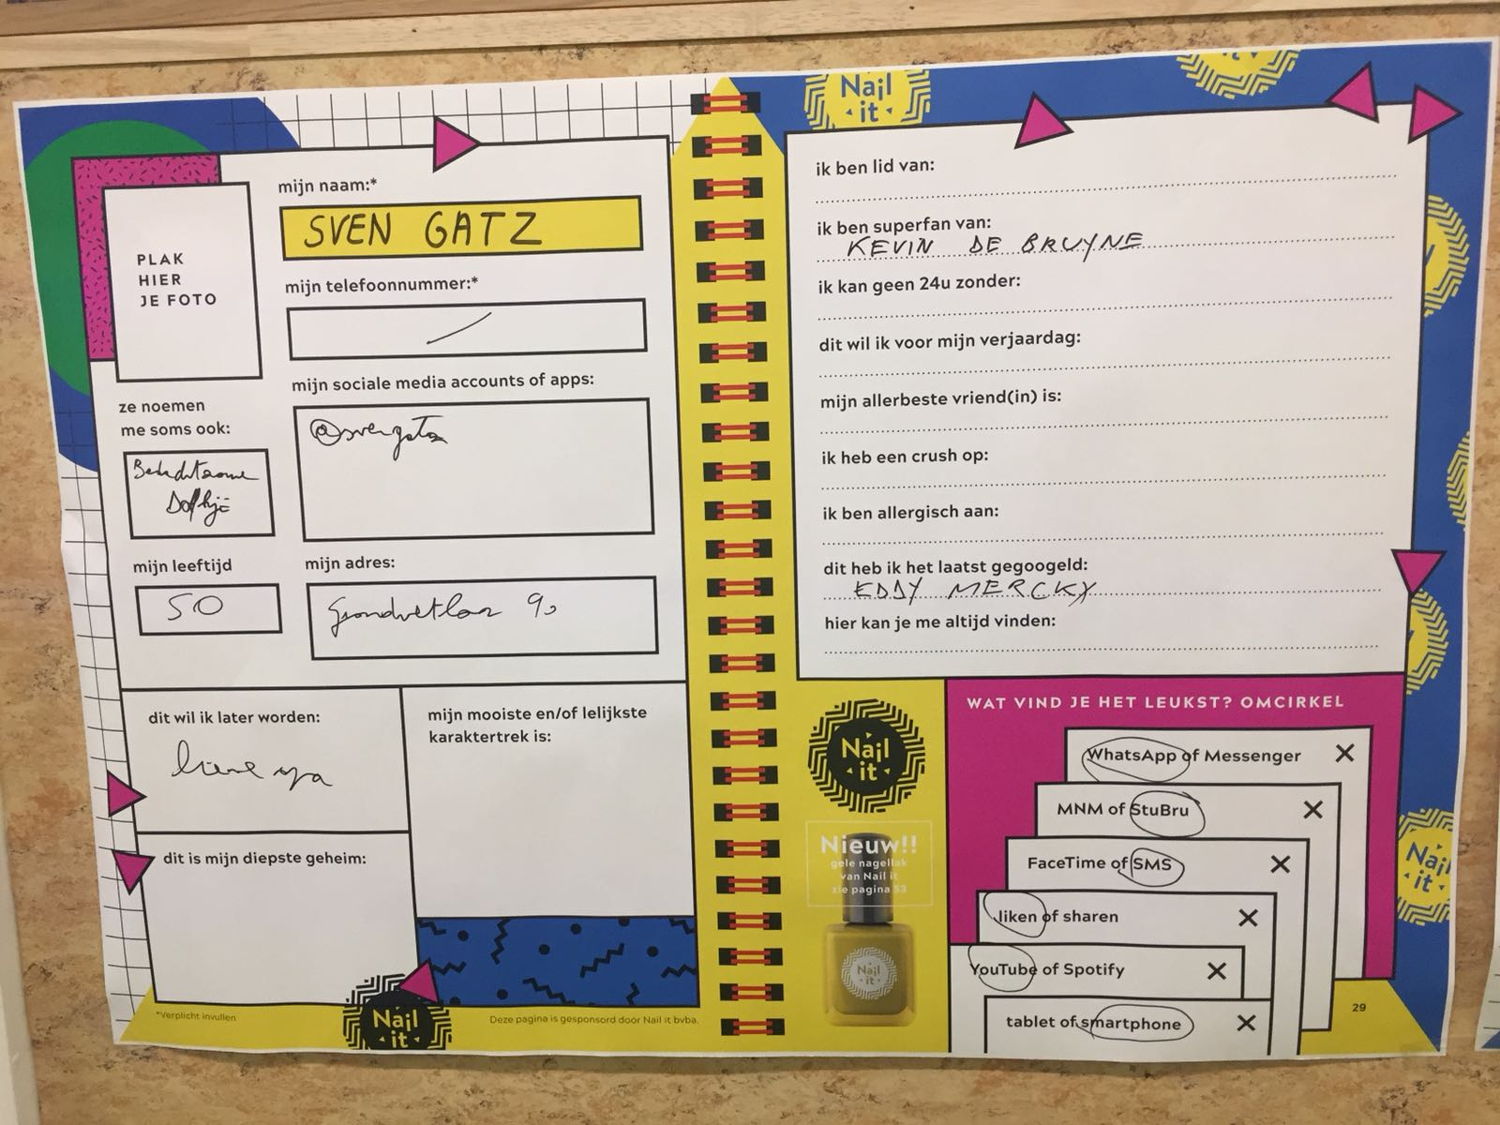 Nail
it
mijn naam:*
SVEN GATZ
PLAK
HIER
JE FOTO
mijn telefoonnummer:*
mijn sociale media accounts of apps:
@svengatz
ze noemen
me soms ook:
Dolfijn
mijn leeftijd
50
mijn adres:
90
dit wil ik later worden:
mijn mooiste en/of lelijkste
karaktertrek is:
dit is mijn diepste geheim:
*Verplicht invullen
Nail
it
Deze pagina is gesponsord door Nail it bvba.
ik ben lid van:
ik ben superfan van:
KEVIN DE BRUYNE
ik kan geen 24u zonder:
dit wil ik voor mijn verjaardag:
mijn allerbeste vriend(in) is:
ik heb een crush op:
ik ben allergisch aan:
dit heb ik het laatst gegoogeld:
EDDY MERCKX
hier kan je me altijd vinden:
Nail
it
Nieuw!!
gele nagellak
van Nail it
zie pagina 53
Nail
it
WAT VIND JE HET LEUKST? OMCIRKEL
WhatsApp of Messenger
MNM of StuBru
FaceTime of SMS
liken of sharen
YouTube of Spotify
tablet of smartphone
29
Nail
it